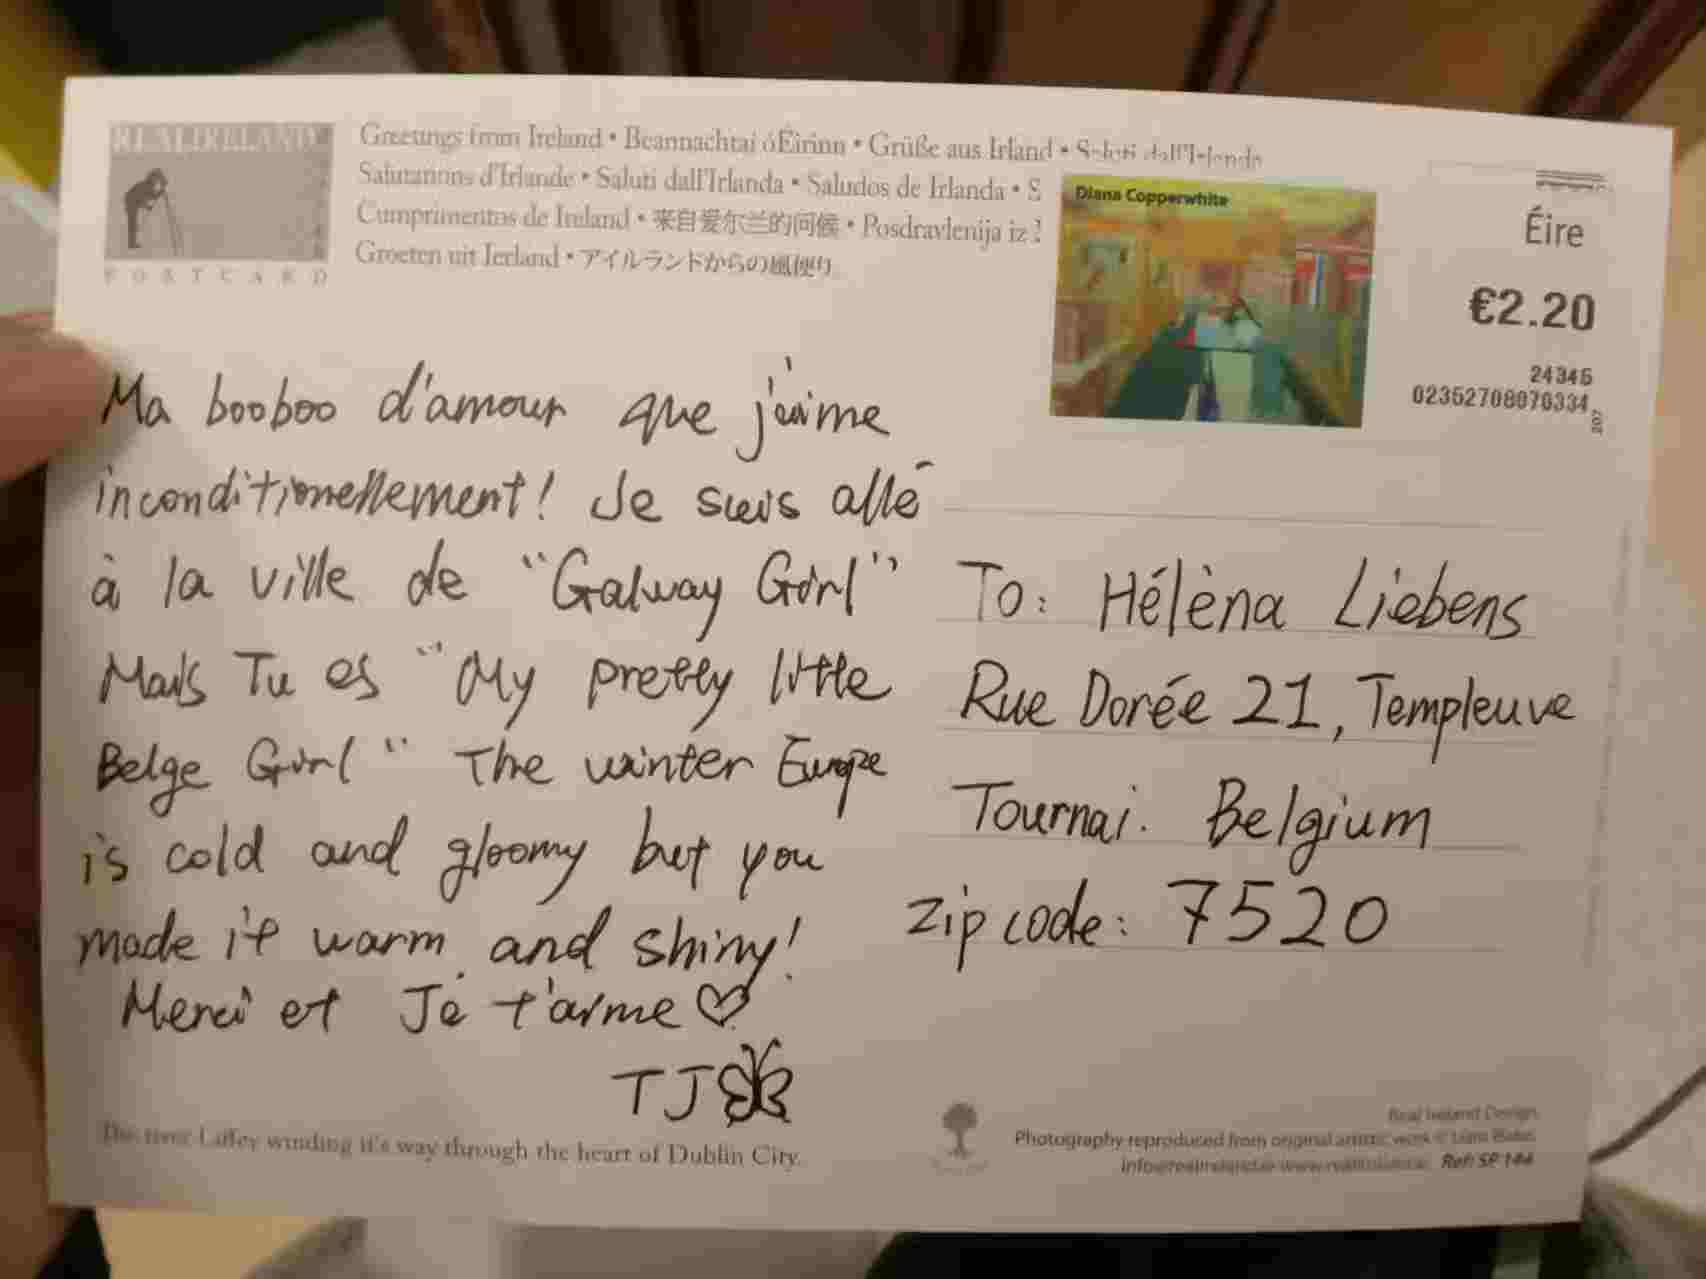 REAL IRELAND
POSTCARD
Greetings from Ireland • Beannachtaí ó Éirinn • Grüße aus Irland • Saluti dall'Irlanda
Salutations d'Irlande • Saluti dall'Irlanda • Saludos de Irlanda • S
Cumprimentos de Ireland • 来自爱尔兰的问候 • Posdravlenija iz
Groeten uit Ierland • アイルランドからの風便り
Diana Copperwhite
Éire
€2.20
24345
02352708070334
207
Ma booboo d'amour que j'aime
inconditionellement! Je suis allé
à la ville de "Galway Girl"
Mais Tu es "My pretty little
Belge Girl" The winter Europe
is cold and gloomy but you
made it warm and shiny!
Merci et Je t'aime
TJ
To: Hélèna Liebens
Rue Dorée 21, Templeuve
Tournai. Belgium
zip code: 7520
The river Liffey winding it's way through the heart of Dublin City.
Real Ireland Design
Photography reproduced from original artistic work ©
Ref: SP 144